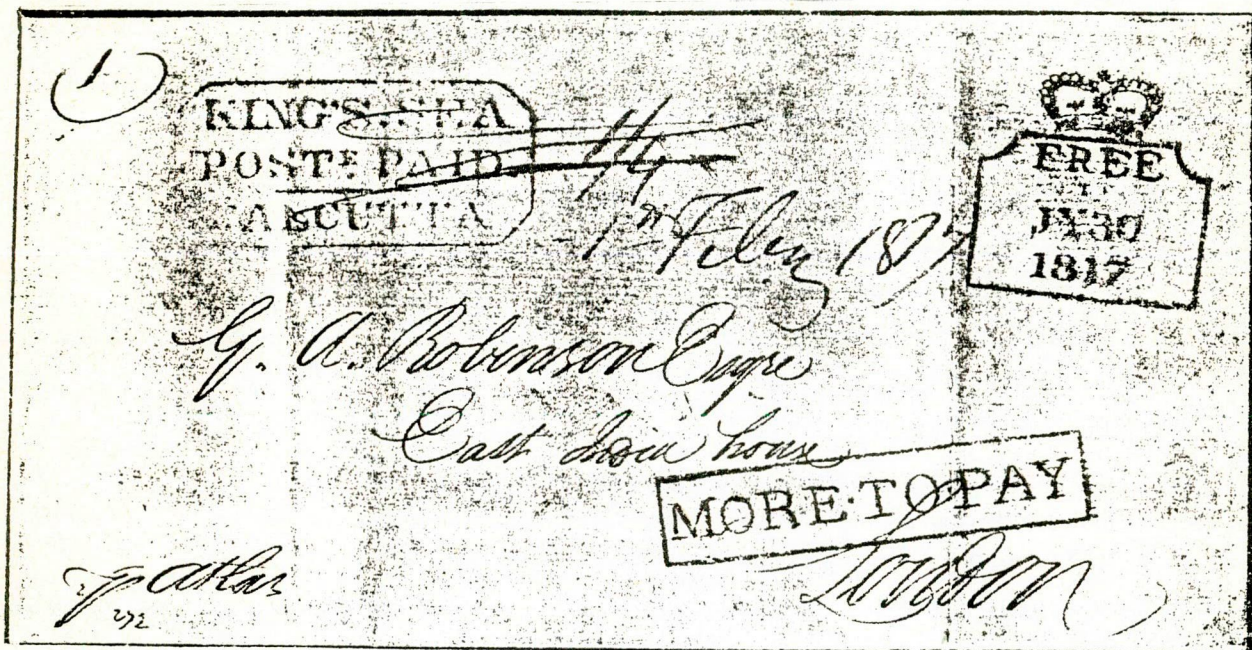 1
KING'S SEA
POSTE PAID.
CALCUTTA
FREE
JY30
1817
1st Feby 1817
G. A. Robinson Esqre
East India house
MORE·TO PAY
London
p Atlas
272